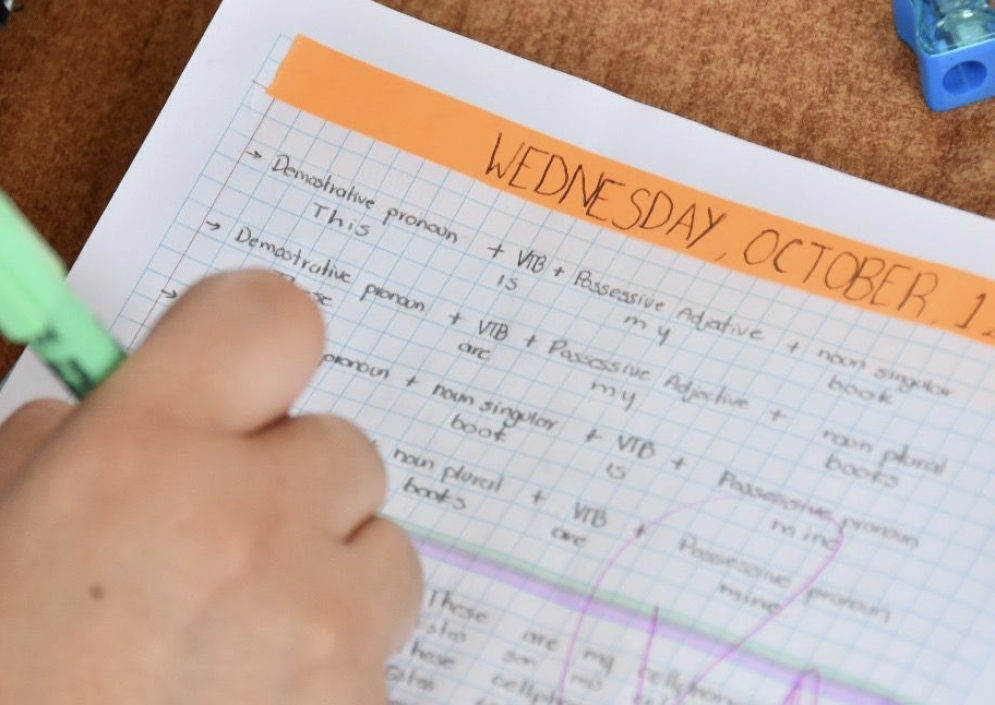 WEDNESDAY, OCTOBER, 1
→ Demostrative pronoun + VTB + Possessive Adjetive + noun singular
This is my book
→ Demostrative pronoun + VTB + Possessive Adjective + noun plural
are my books
→ pronoun + noun singular + VTB + Possessive pronoun
book is mine
noun plural + VTB + Possessive pronoun
books are mine
These are my cellphone
son mis